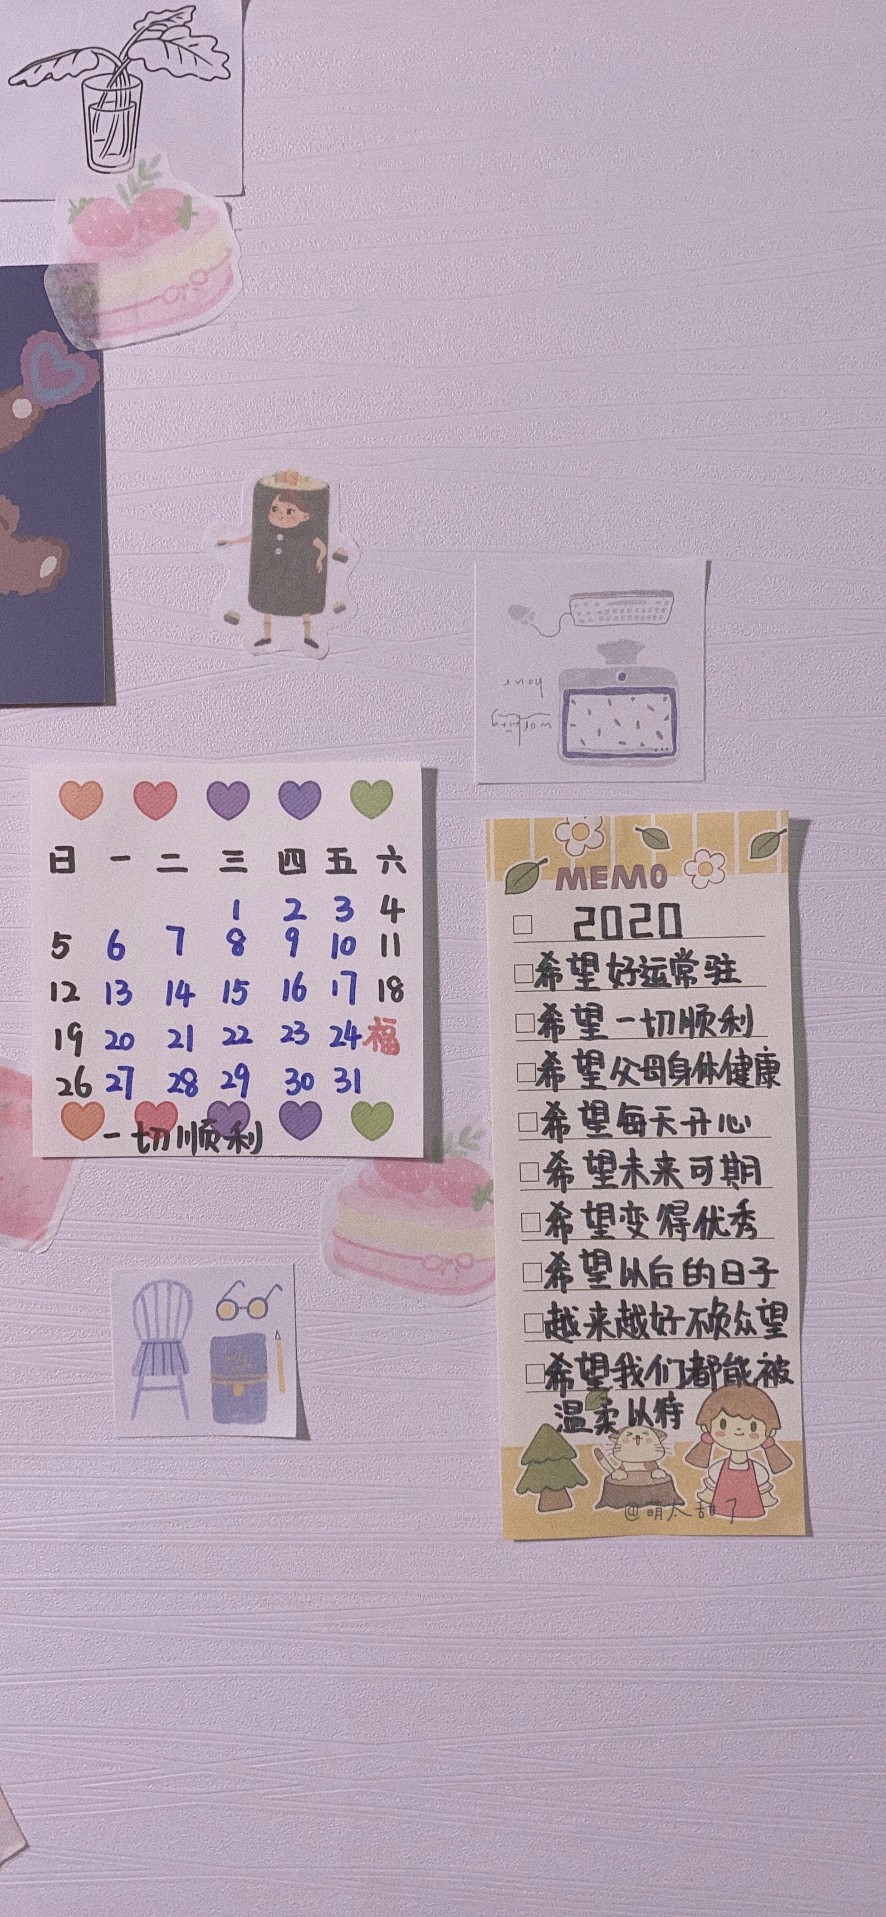 working
home
日 一 二 三 四 五 六
1 2 3 4
5 6 7 8 9 10 11
12 13 14 15 16 17 18
19 20 21 22 23 24 福
26 27 28 29 30 31
一切顺利
MEMO
2020
希望好运常驻
希望一切顺利
希望父母身体健康
希望每天开心
希望未来可期
希望变得优秀
希望以后的日子
越来越好不负众望
希望我们都能被
温柔以待
@萌太甜了